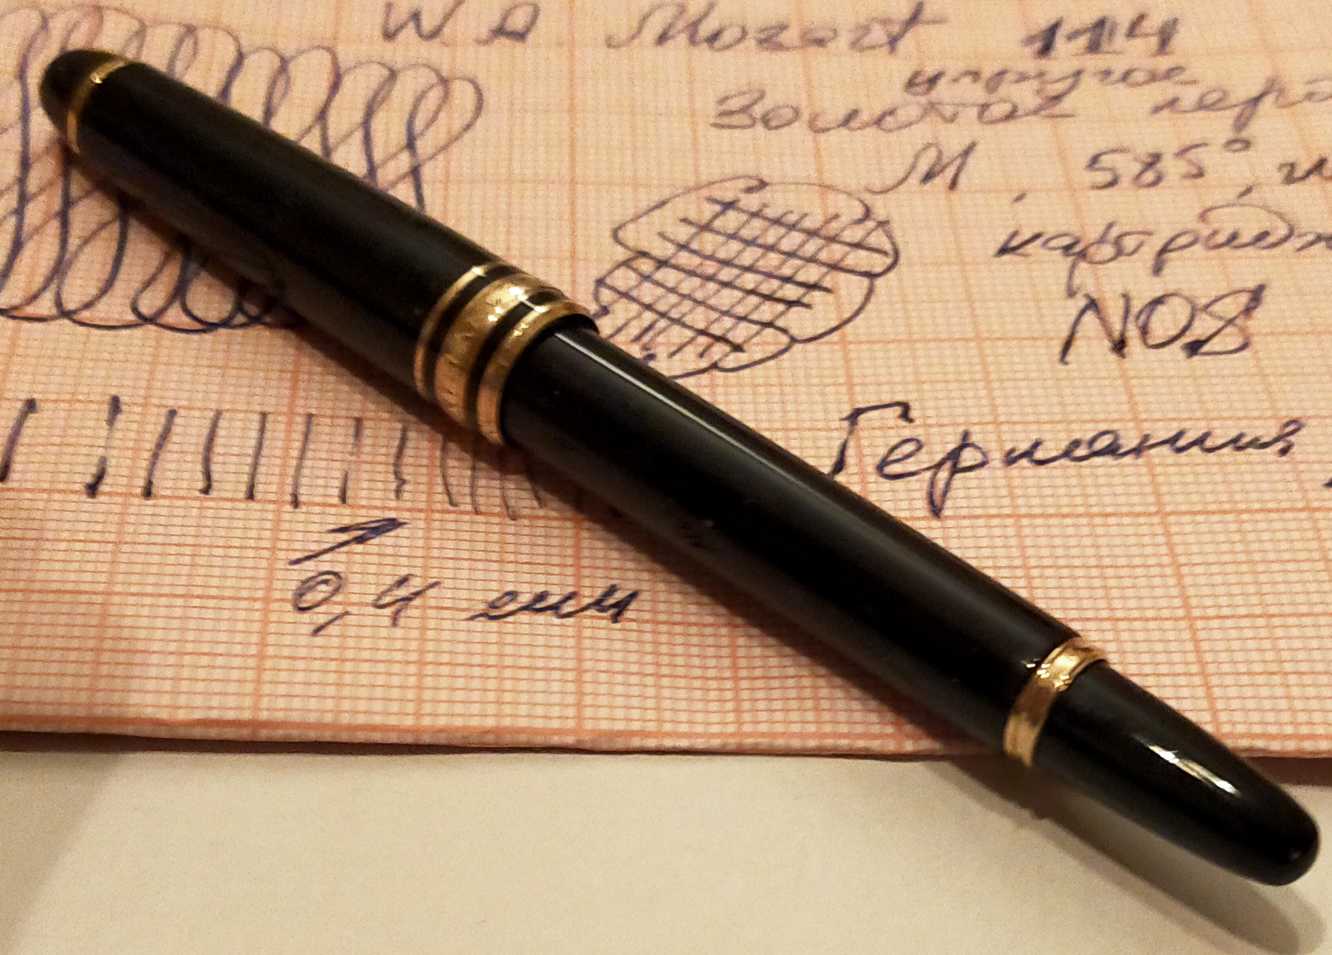 W A Mozart 114
упругое
Золотое перо
M, 585°, и
картридж
N08
Германия,
0,4 мм